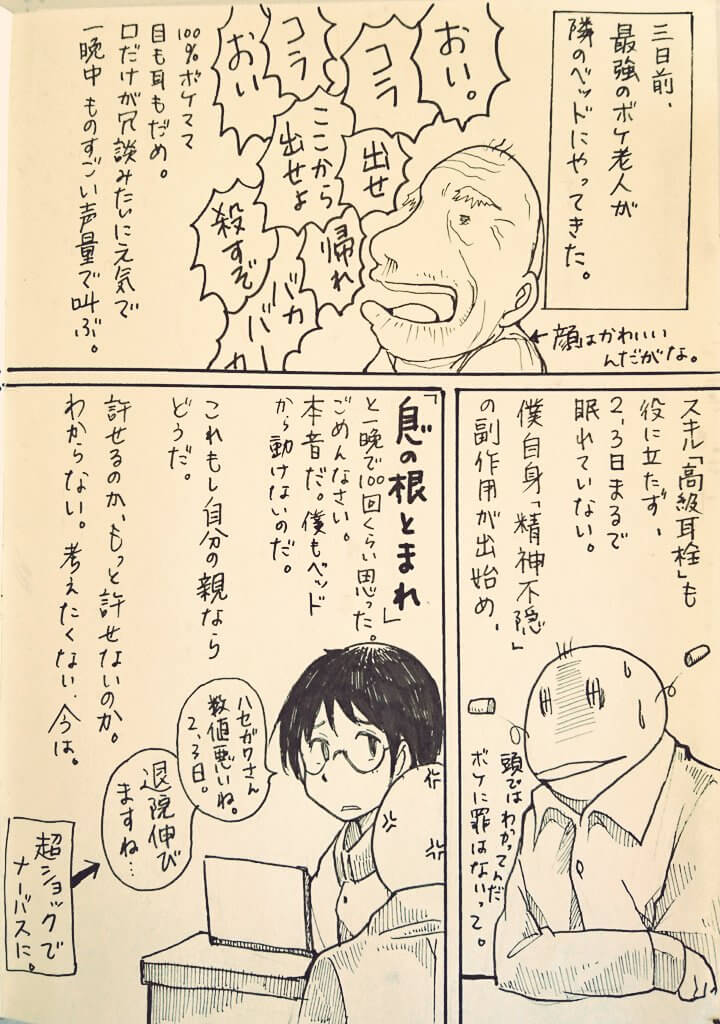 三日前、
最強のボケ老人が
隣のベッドにやってきた。
おい。
コラ
コラ
おい
出せ
ここから
出せよ
帰れ
殺すぞ
バカ
バカ
100%ボケママ
目も耳もだめ。
口だけが冗談みたいに元気で
一晩中ものすごい声量で叫ぶ。
←顔はかわいい
んだがな。
スキル「高級耳栓」も
役に立たず、
2,3日まるで
眠れていない。
僕自身「精神不隠」
の副作用が出始め、
頭ではわかってんだ
ボケに罪はないって。
「息の根とまれ」
と一晩で100回くらい思った。
ごめんなさい。
本音だ。僕もベッド
から動けないのだ。
これもし自分の親なら
どうだ。
許せるのか、もっと許せないのか。
わからない。考えたくない、今は。
ハセガワさん
数値悪いね。
2,3日。
退院伸び
ますね…
超ショックで
ナーバスに。